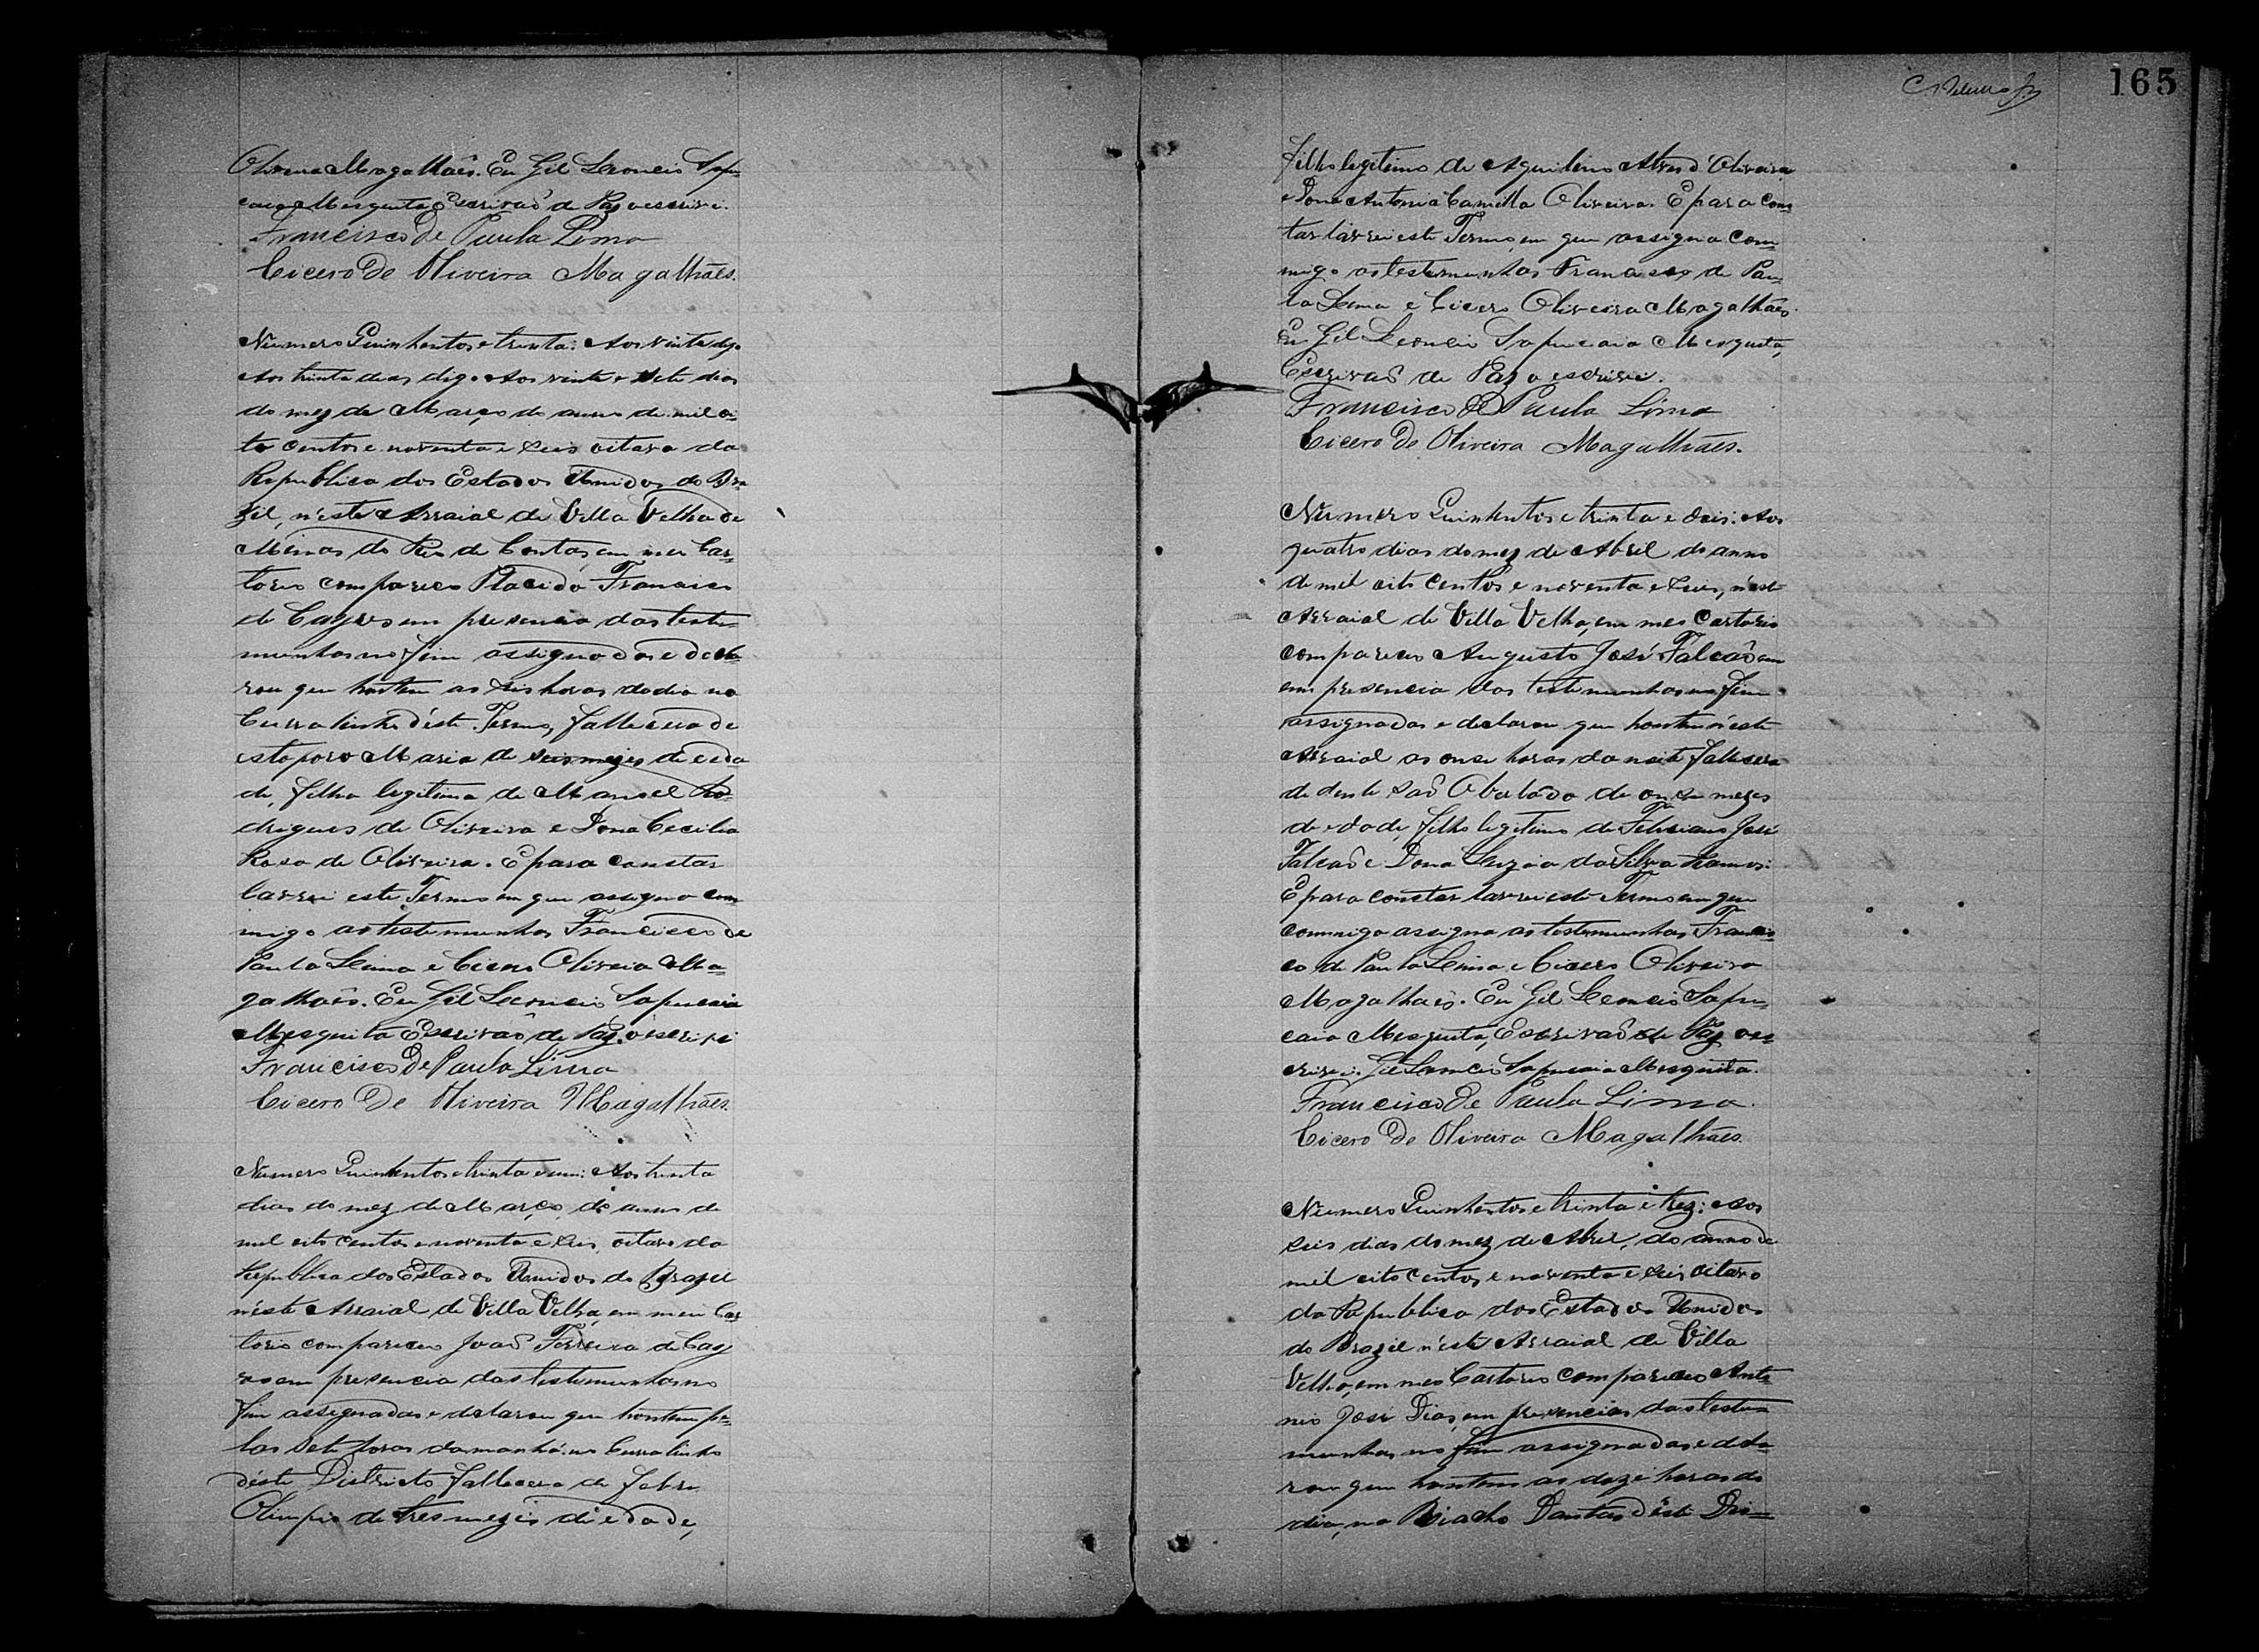 Oliveira Magalhães. Eu Gil Leoncio Sapu-
caia Mesquita Escrivaõ de Paz o escrivi.
Francisco de Paula Lima
Cicero de Oliveira Magalhães.
Numero Quinhentos e trinta: Aos vinte digo
Aos trinta dias digo Aos vinte e sete dias
do mez de Março do anno de mil oi-
to centos e noventa e seis oitavo da
Republica dos Estados Unidos do Bra
zil, n'este Arraial de Villa Velha de
Minas do Rio de Contas, em meu Car-
torio compareceo Placido Francisco
de Cayres em presencia das teste-
munhas no fim assignadas e decla-
rou que hontem as seis horas do dia no
Curralinho d'este Termo, fallecera de
estoporo Maria de seis mezes de eda
de, filha legitima de Manoel Ro-
drigues de Oliveira e Dona Cecilia
Rosa de Oliveira. E para constar
lavrei este Termo em que assigno com
migo as testemunhas Francisco de
Paula Lima e Cicero Oliveia Ma-
galhaês. Eu Gil Leoncio Sapucaia
Mesquita Escrivaõ de Paz o escrivi
Francisco de Paula Lima
Cicero de Oliveira Magalhães.
Numero Quinhentos e trinta e um: Aos trinta
dias do mez de Março do anno de
mil oito centos e noventa e seis, oitavo da
Republica dos Estados Unidos do Brazil
n'este Arraial de Villa Velha, em meu Car
torio compareceo Joaõ Ferreira de Cay
res em presencia das testemunhas no
fim assignadas e declarou que hontem pe-
las sete horas da manhã no Curralinho
d'este Districto fallecera de febre
Olimpio de tres mezes de edade,
165
filho legitimo de Aquilino Alves d'Oliveira
e Dona Antonia Camilla Oliveira. E para cons
tar lavrei este Termo, em que assigna com-
migo as testemunhas Francisco de Pau-
la Lima e Cicero Oliveira Magalhães.
Eu Gil Leoncio Sapucaia Mesquita,
Escrivaõ de Paz o escrivi.
Francisco de Paula Lima
Cicero de Oliveira Magalhães.
Numero Quinhentos e trinta e dois: Aos
quatro dias do mez de Abril do anno
de mil oito centos e noventa e seis, n'este
Arraial de Villa Velha, em meo Cartorio
compareceo Augusto José Falcaõ em
em presencia das testemunhas no fim
assignadas e declarou que hontem n'este
Arraial as onze horas da noite fallecera
de dentesaõ de onze mezes
de edade, filho legitimo de Feliciano José
Falcaõ e Dona Luzia da Silva Ramos:
E para constar lavrei este Termo em que
commigo assigna as testemunhas Francis-
co de Paula Lima e Cicero Oliveira
Magalhaês. Eu Gil Leoncio Sapu-
caia Mesquita, Escrivaõ de Paz o es
crivi. Gil Leoncio Sapucaia Mesquita.
Francisco de Paula Lima.
Cicero de Oliveira Magalhães.
Numero Quinhentos e trinta e trez: Aos
seis dias do mez de Abril, do anno de
mil oito centos e noventa e seis oitavo
da Republica dos Estados Unidos
do Brazil n'este Arraial de Villa
Velha, em meo Cartorio compareceo Anto
nio José Dias, em presencia das teste
munhas no fim assignadas e decla
rou que hontem as doze horas do
dia, no Riacho Dantas d'este Dis-